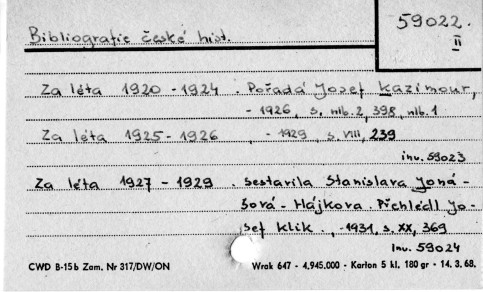 59022.
II
Bibliografie české hist.
Za léta 1920 - 1924 . Pořádá Josef Kazimour,
- 1926, s. nlb. 2, 398, nlb. 1
Za léta 1925 - 1926 , - 1929, s. VIII, 239
inv. 59023
Za léta 1927 - 1929 . Sestavila Stanislava Joná-
šová - Hájkova. Přehlédl Jo-
sef Klik. , -1931, s. XX, 369
Inv. 59024
CWD B-15b Zam. Nr 317/DW/ON Wrak 647 - 4,945.000 - Karton 5 kl. 180 gr - 14. 3. 68.